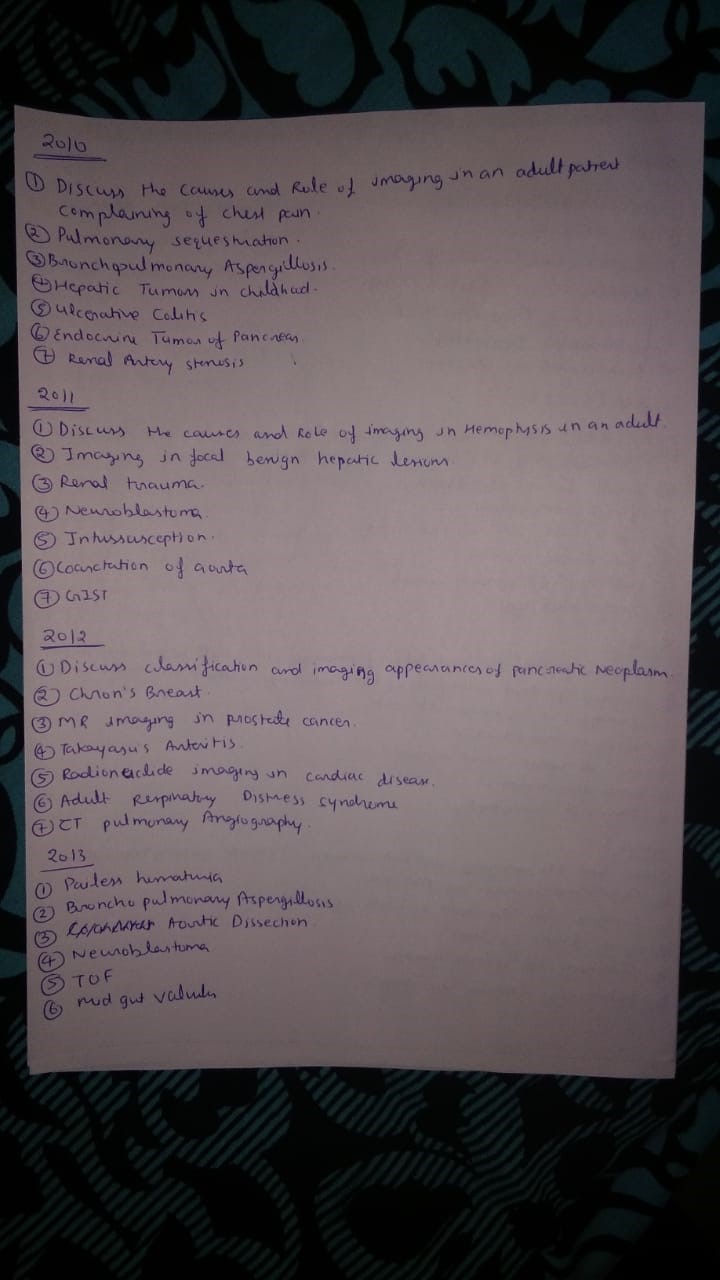 2010
① Discuss the causes and Role of imaging in an adult patient
complaining of chest pain.
② Pulmonary sequestration.
③ Bronchopulmonary Aspergillosis.
④ Hepatic Tumors in childhood.
⑤ ulcerative Colitis
⑥ Endocrine Tumor of Pancreas
⑦ Renal Artery stenosis
2011
① Discuss the causes and Role of imaging in Hemophysis in an adult.
② Imaging in focal benign hepatic lesions
③ Renal trauma.
④ Neuroblastoma.
⑤ Intussusception.
⑥ Coarctation of aorta
⑦ GIST
2012
① Discuss classification and imaging appearances of pancreatic Neoplasm.
② Chron's Breast.
③ MR imaging in prostate cancer.
④ Takayasu's Arteritis.
⑤ Radionuclide imaging in cardiac disease.
⑥ Adult Respiratory Distress syndrome
⑦ CT pulmonary Angiography.
2013
① Painless hematuria
② Broncho pulmonary Aspergillosis
③ Aortic Dissection.
④ Neuroblastoma
⑤ TOF
⑥ mid gut